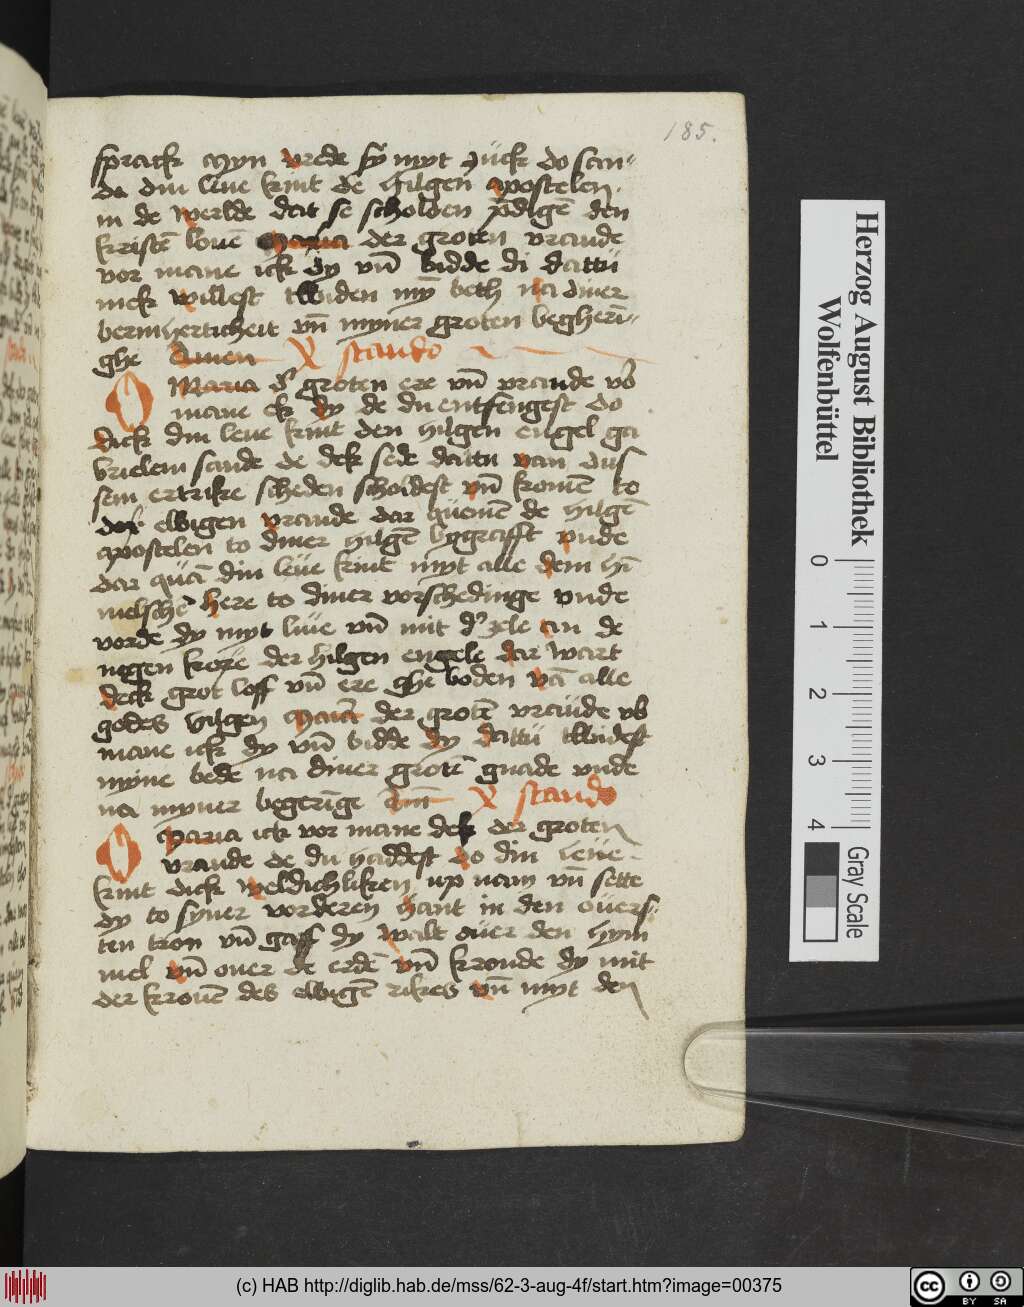 185.
sprack myn vrede sy myt jück do san⸗
de din leue kint de hilgen apostelen.
in de werlde dat se scholden p̄digē den
kristē louē maria der groten vraude
vor mane ick dy vn̄ bidde di dattu
mek willest twiden mȳ beth na diner
bermherticheit vn̄ myner groten begheri⸗
ghe Amen X stando
O Maria d' groten ere vn̄ vraude vō
mane ek dy de du entfengest do
dick din leue kint den hilgen engel ga
brielem sande de dek sede dattu van dus
sem ertrike scheden scholdest vn̄ komē to
der ewigen vraude dar quemē de hilgē
apostelen to diner hilgē bygrafft vnde
dar quā din leue kint myt alle dem hī
melschē here to diner vorschedinge vnde
vorde dy myt liue vn̄ mit d' zele an de
negen kore der hilgen engele dar wart
deck grot loff vn̄ ere ghe boden vā alle
godes hilgen maria der grotē vraude vō
mane ick dy vn̄ bidde dy dattu twidest
myne bede na diner grotē gnade vnde
na myner begerīge Am̄ X stando
O Maria ick vor mane dek der groten
vraude de du haddest do din leue
kint dick weldichliken up nam vn̄ sette
dy to syner vorderen hant in den ouers⸗
ten tron vn̄ gaff dy walt ouer den hym
mel vn̄ ouer de erdē vn̄ kronde dy mit
der kronē des ewigē rikes vn̄ myt den
Herzog August Bibliothek
Wolfenbüttel
0 1 2 3 4
Gray Scale
(c) HAB http://diglib.hab.de/mss/62-3-aug-4f/start.htm?image=00375
cc BY SA